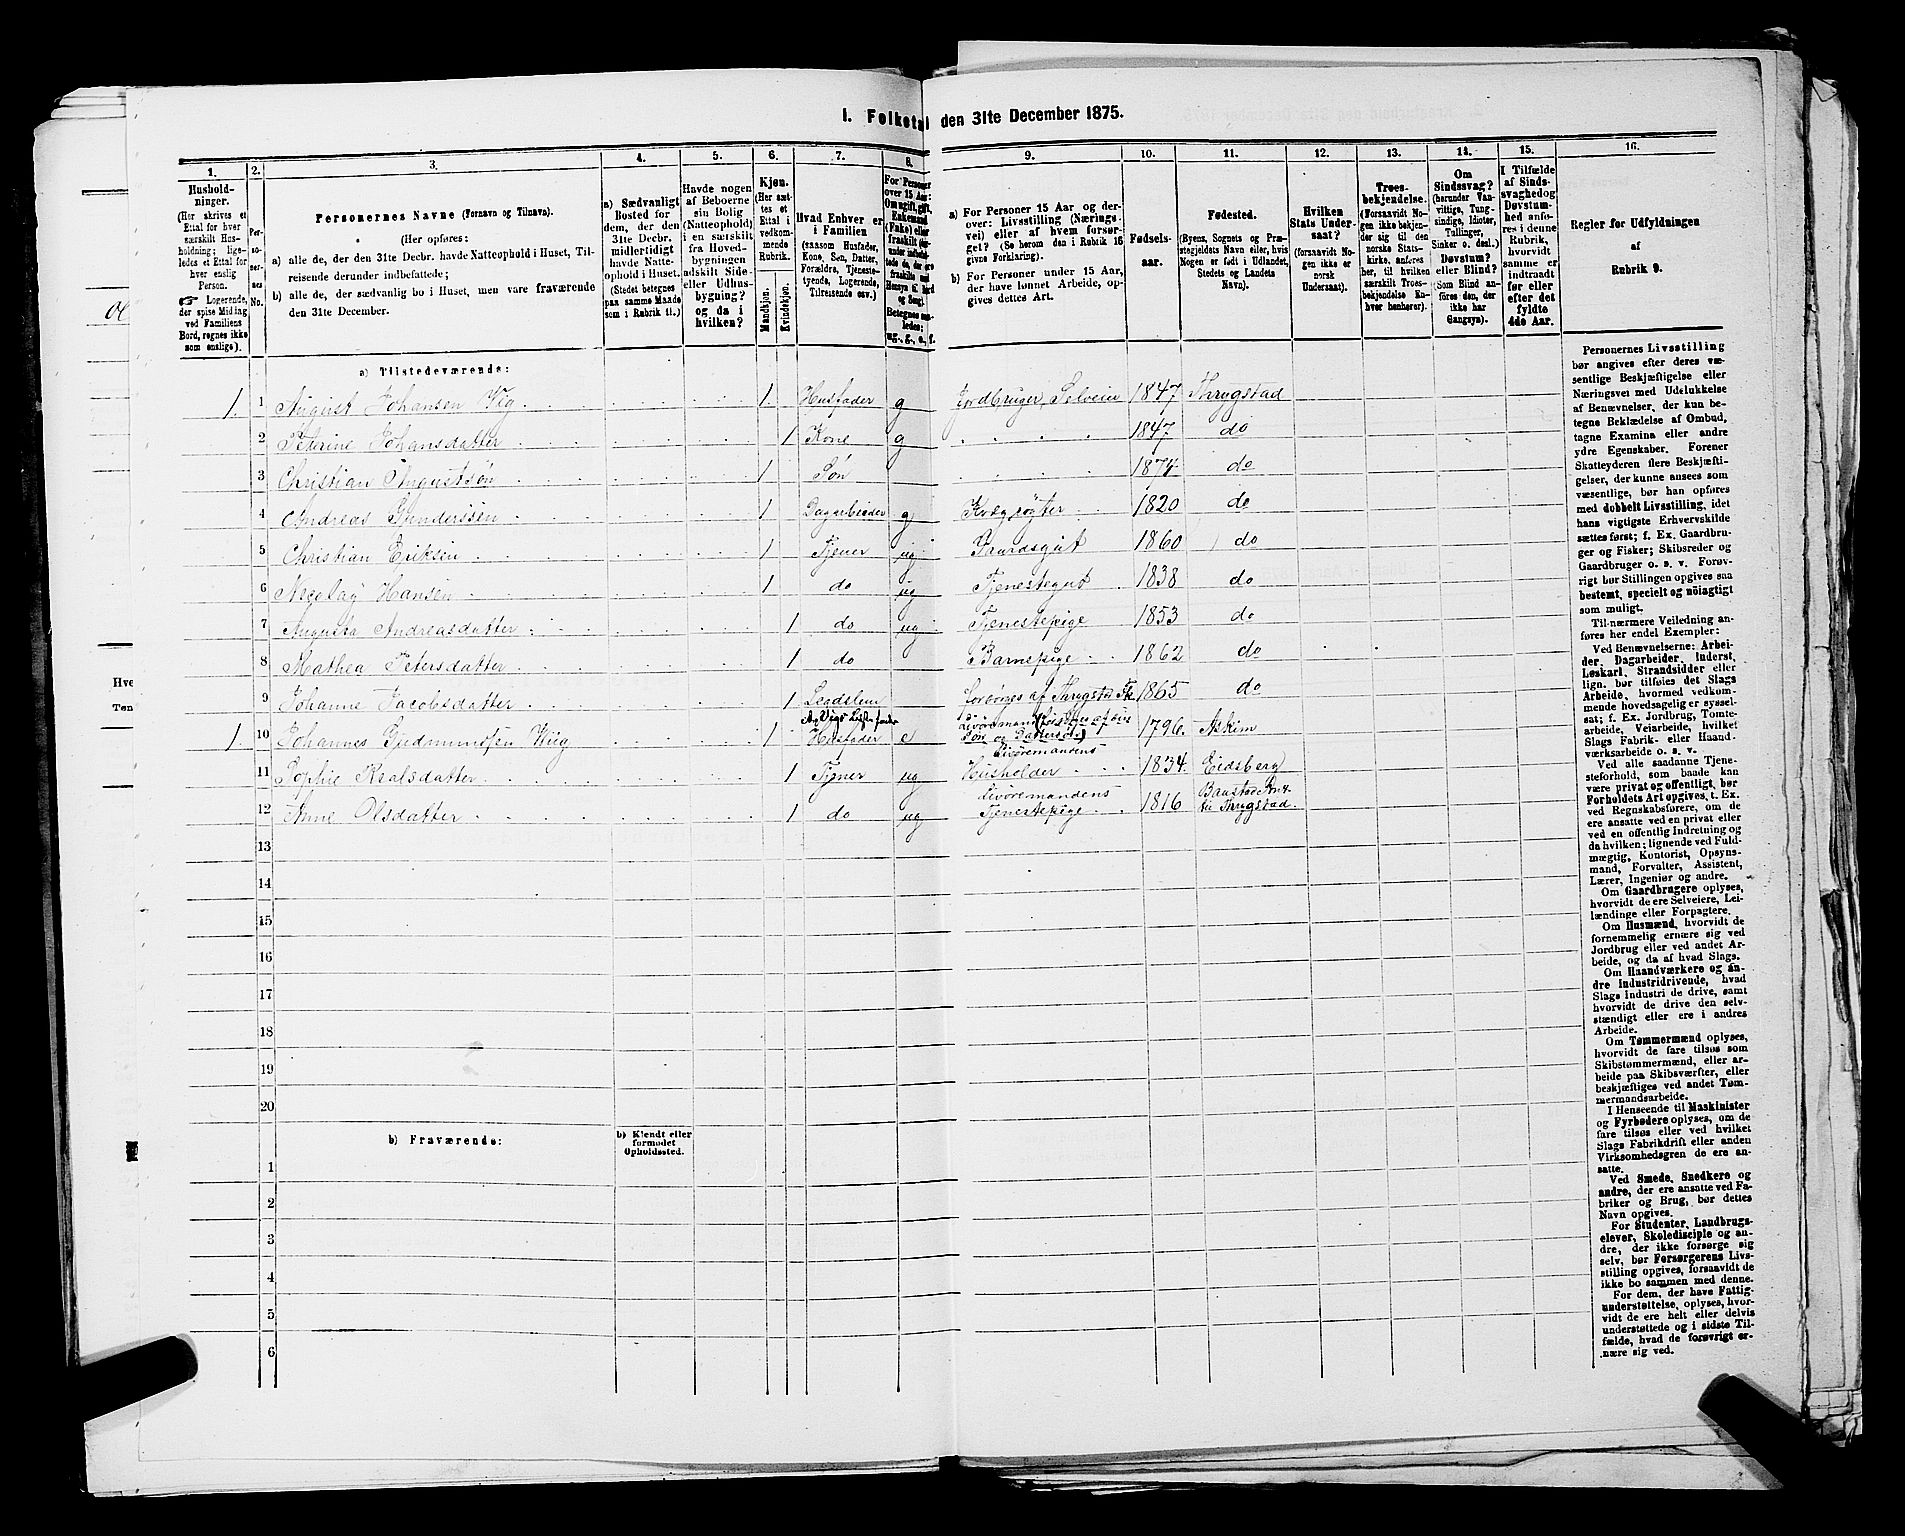 I. Folketal den 31te December 1875.
1. 2. 3. 4. 5. 6. 7. 8. 9. 10. 11. 12. 13. 14. 15. 16.
Husholdninger.
(Her skrives et
Ettal for hver
særskilt Husholdning; ligeledes et Ettal for
hver enslig
Person.
Logerende,
der spise Middag
ved Familiens
Bord, regnes ikke
som enslige).
Personernes No.
Personernes Navne (Fornavn og Tilnavn).
(Her opføres:
a) alle de, der den 31te Decbr. havde Natteophold i Huset, Tilreisende derunder indbefattede;
b) alle de, der sædvanlig bo i Huset, men vare fraværende
den 31te December.
a) Sædvanligt
Bosted for
dem, der den
31te Decbr.
midlertidigt
havde Natteophold i Huset.
(Stedet betegnes
paa samme Maade
som i Rubrik 11.)
Havde nogen
af Beboerne
sin Bolig
(Natteophold)
i en særskilt
fra Hovedbygningen
adskilt Side-
eller Udhusbygning?
og da i
hvilken?
Kjøn.
(Her sættes et
Ettal i
vedkommende
Rubrik.
Mandkjøn.
Kvindekjøn.
Hvad Enhver er
i Familien
(saasom Husfader,
Kone, Søn, Datter,
Forældre, Tjenestetyende, Logerende,
Tilreisende osv.)
For Personer
over 15 Aar:
Om ugift, gift,
Enkemand
(Enke) eller
fraskilt
Betegnes saaledes:
ug., g., e., f.
a) For Personer 15 Aar og derover: Livsstilling (Næringsvei) eller af hvem forsørget? (Se herom den i Rubrik 16
givne Forklaring).
b) For Personer under 15 Aar,
der have lønnet Arbeide, opgives dettes Art.
Fødselsaar.
Fødested.
(Byens, Sognets og Præstegjeldets Navn eller, hvis
Nogen er født i Udlandet,
Stedets og Landets
Navn).
Hvilken
Stats Undersaat?
(forsaavidt Nogen ikke er
norsk
Undersaat).
Troesbekjendelse.
(Forsaavidt Nogen ikke bekjender sig til den
norske Statskirke, anføres
her, til hvilken
særskilt Troesbekjendelse Enhver henhører).
Om
Sindssvag?
(herunder Vanvittige, Tungsindige, Idioter,
Tullinger,
Sinker o. desl.)
Døvstum?
eller Blind?
(Som Blind anføres den, der
ikke har
Gangsyn).
I Tilfælde
af Sindssvaghed og
Døvstumhed anføres i denne
Rubrik,
hvorvidt
samme er
indtraadt
før eller
efter det
fyldte
4de Aar.
Regler for Udfyldningen
af
Rubrik 9.
a) Tilstedeværende:
1. 1 August Johansen Vig 1. Husfader g Jordbruger, Selveier 1847 Thrygstad
2 Petrine Johansdatter 1 Kone g 1847 do
3 Christian Augustsøn 1 Søn 1874 do
4 Andreas Gunderssen 1 Dagarbeider g Kvægrøgter 1820 do
5 Christian Eriksen 1 Tjener ug Gaardsgut 1860 do
6 Nicolay Hansen 1 do ug Tjenestegut 1838 do
7 Augusta Andreasdatter 1 do ug Tjenestepige 1853 do
8 Mathea Petersdatter 1 do Barnepige 1862 do
9 Johanne Jacobsdatter 1 Legdslem forsørges af Thrygstad Fk 1865 do
1. 10 Johannes Gudmundsen Wiig 1 Husfader e 1796. Askim
11 Sophie Karlsdatter 1 Tjener ug Livøremandens Husholder 1834. Eidsberg
12 Anne Olsdatter 1 do ug Livøremandens Tjenestepige 1816 til Thrygstad.
13
14
15
16
17
18
19
20
b) Fraværende:
b) Kjendt eller
formodet
Opholdssted.
1
2
3
4
5
6
Personernes Livsstilling
bør angives efter deres væsentlige Beskjæftigelse eller
Næringsvei med Udelukkelse
af Benævnelser, der kun betegne Beklædelse af Ombud,
tagne Examina eller andre
ydre Egenskaber. Forener
Skatteyderen flere Beskjæftigelser, der kunne ansees som
væsentlige, bør han opføres
med dobbelt Livsstilling, idet
hans vigtigste Erhvervskilde
sættes først; f. Ex. Gaardbruger og Fisker; Skibsreder og
Gaardbruger o. s. v. Forøvrigt bør Stillingen opgives saa
bestemt, specielt og nöiagtigt
som muligt.
Til nærmere Veiledning anføres her endel Exempler:
Ved Benævnelserne: Arbeider, Dagarbeider, Inderst,
Løskarl, Strandsidder eller
lign. bør tilføies det Slags
Arbeide, hvormed vedkommende hovedsagelig er sysselsat; f. Ex. Jordbrug, Tomtearbeide, Veiarbeide, hvilket
Slags Fabrik- eller Haandværksarbeide o. s. v.
Ved alle saadanne Tjenesteforhold, som baade kan
være privat og offentligt, bør
Forholdets Art opgives, t. Ex.
ved Regnskabsførere, om de
ere ansatte ved en privat eller
ved en offentlig Indretning og
da hvilken; lignende ved Fuldmægtig, Kontorist, Opsynsmand, Forvalter, Assistent,
Lærer, Ingeniør og andre.
Om Gaardbrugere oplyses,
hvorvidt de ere Selveiere, Leilændinge eller Forpagtere.
Om Husmænd, hvorvidt de
fornemmelig ernære sig ved
Jordbrug eller ved andet Arbeide, og da af hvad Slags.
Om Haandværkere og andre Industridrivende, hvad
Slags Industri de drive, samt
hvorvidt de drive den selvstændigt eller ere i andres
Arbeide.
Om Tømmermænd oplyses,
hvorvidt de fare tilsøs som
Skibstømmermænd, eller arbeide paa Skibsværfter, eller
beskjæftiges ved andet Tømmermandsarbeide.
I Henseende til Maskinister
og Fyrbødere oplyses, om de
fare tilsøs eller ved hvilket
Slags Fabrikdrift eller anden
Virksomhedsgren de ere ansatte.
Ved Smede, Snedkere og
andre, der ere ansatte ved Fabriker og Brug, bør dettes
Navn opgives.
For Studenter, Landbrugselever, Skoledisciple og andre, der ikke forsørge sig
selv, bør Forsørgerens Livsstilling opgives, forsaavidt de
ikke bo sammen med denne.
For dem, der have Fattigunderstøttelse, oplyses, hvorvidt de ere helt eller delvis
understøttede og i sidste Tilfælde, hvad de forøvrigt ernære sig ved.